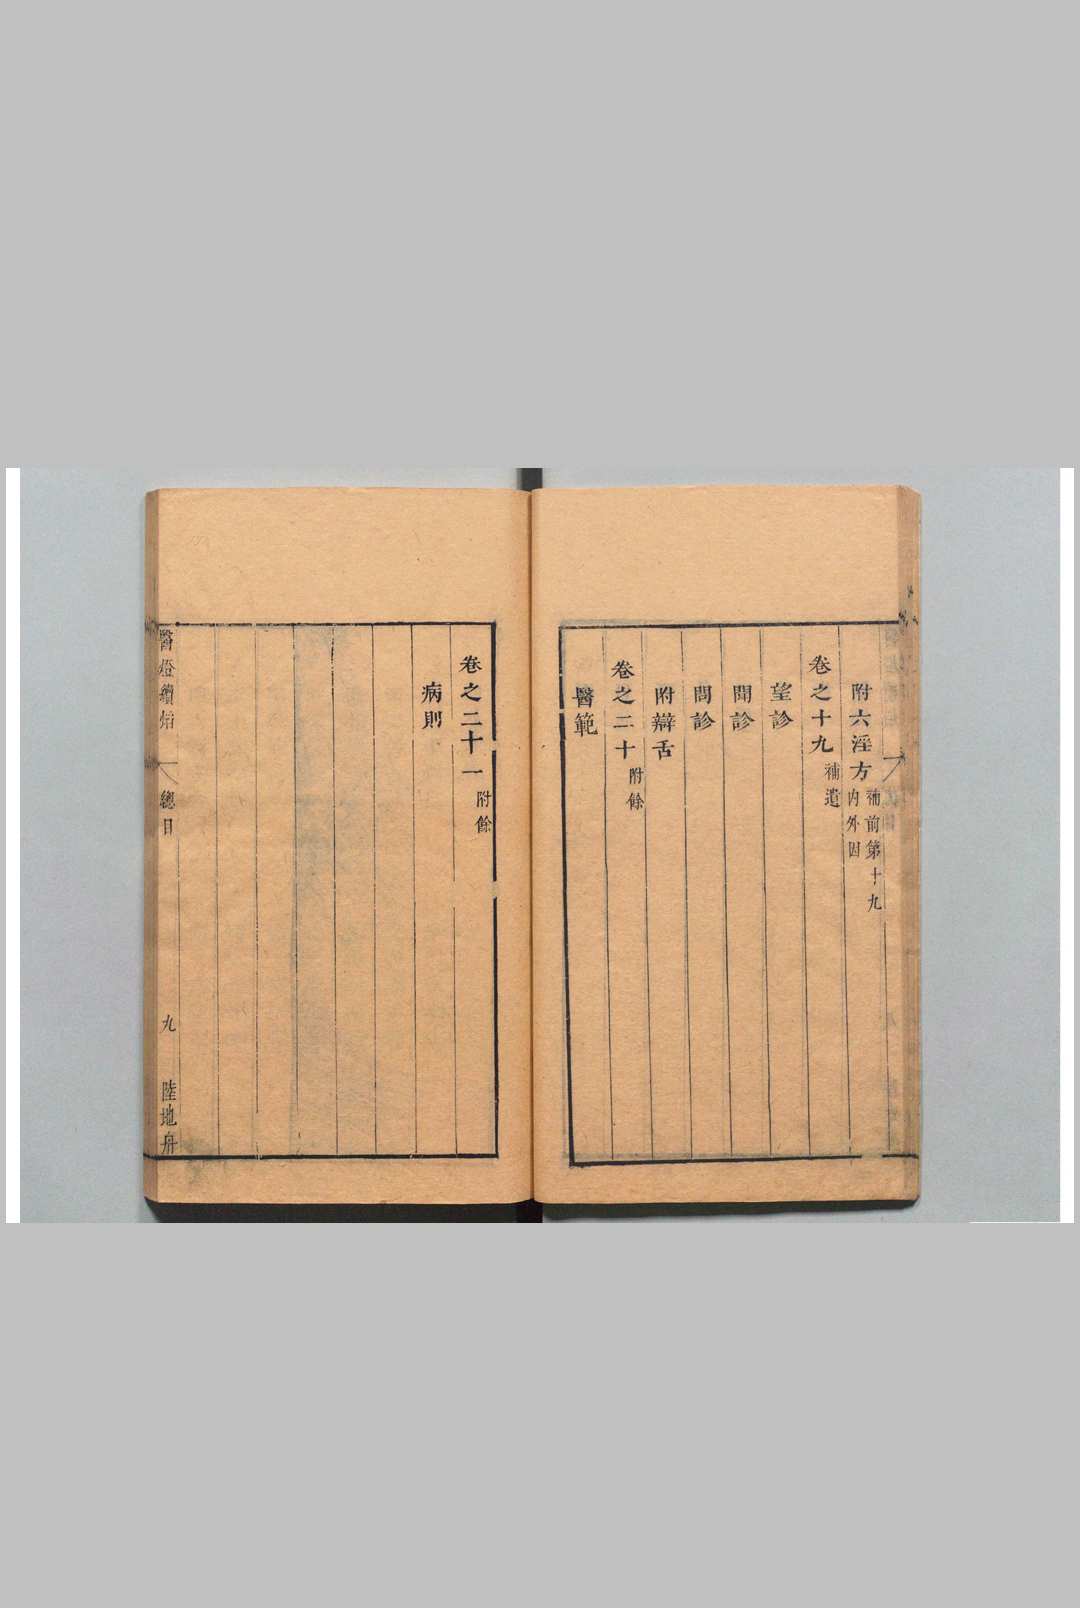 附六淫方補前第十九
內外因
卷之十九補遺
望診
聞診
問診
附辯舌
卷之二十附餘
醫範
卷之二十一附餘
病則
醫燈續焰
總目
九
陸地舟